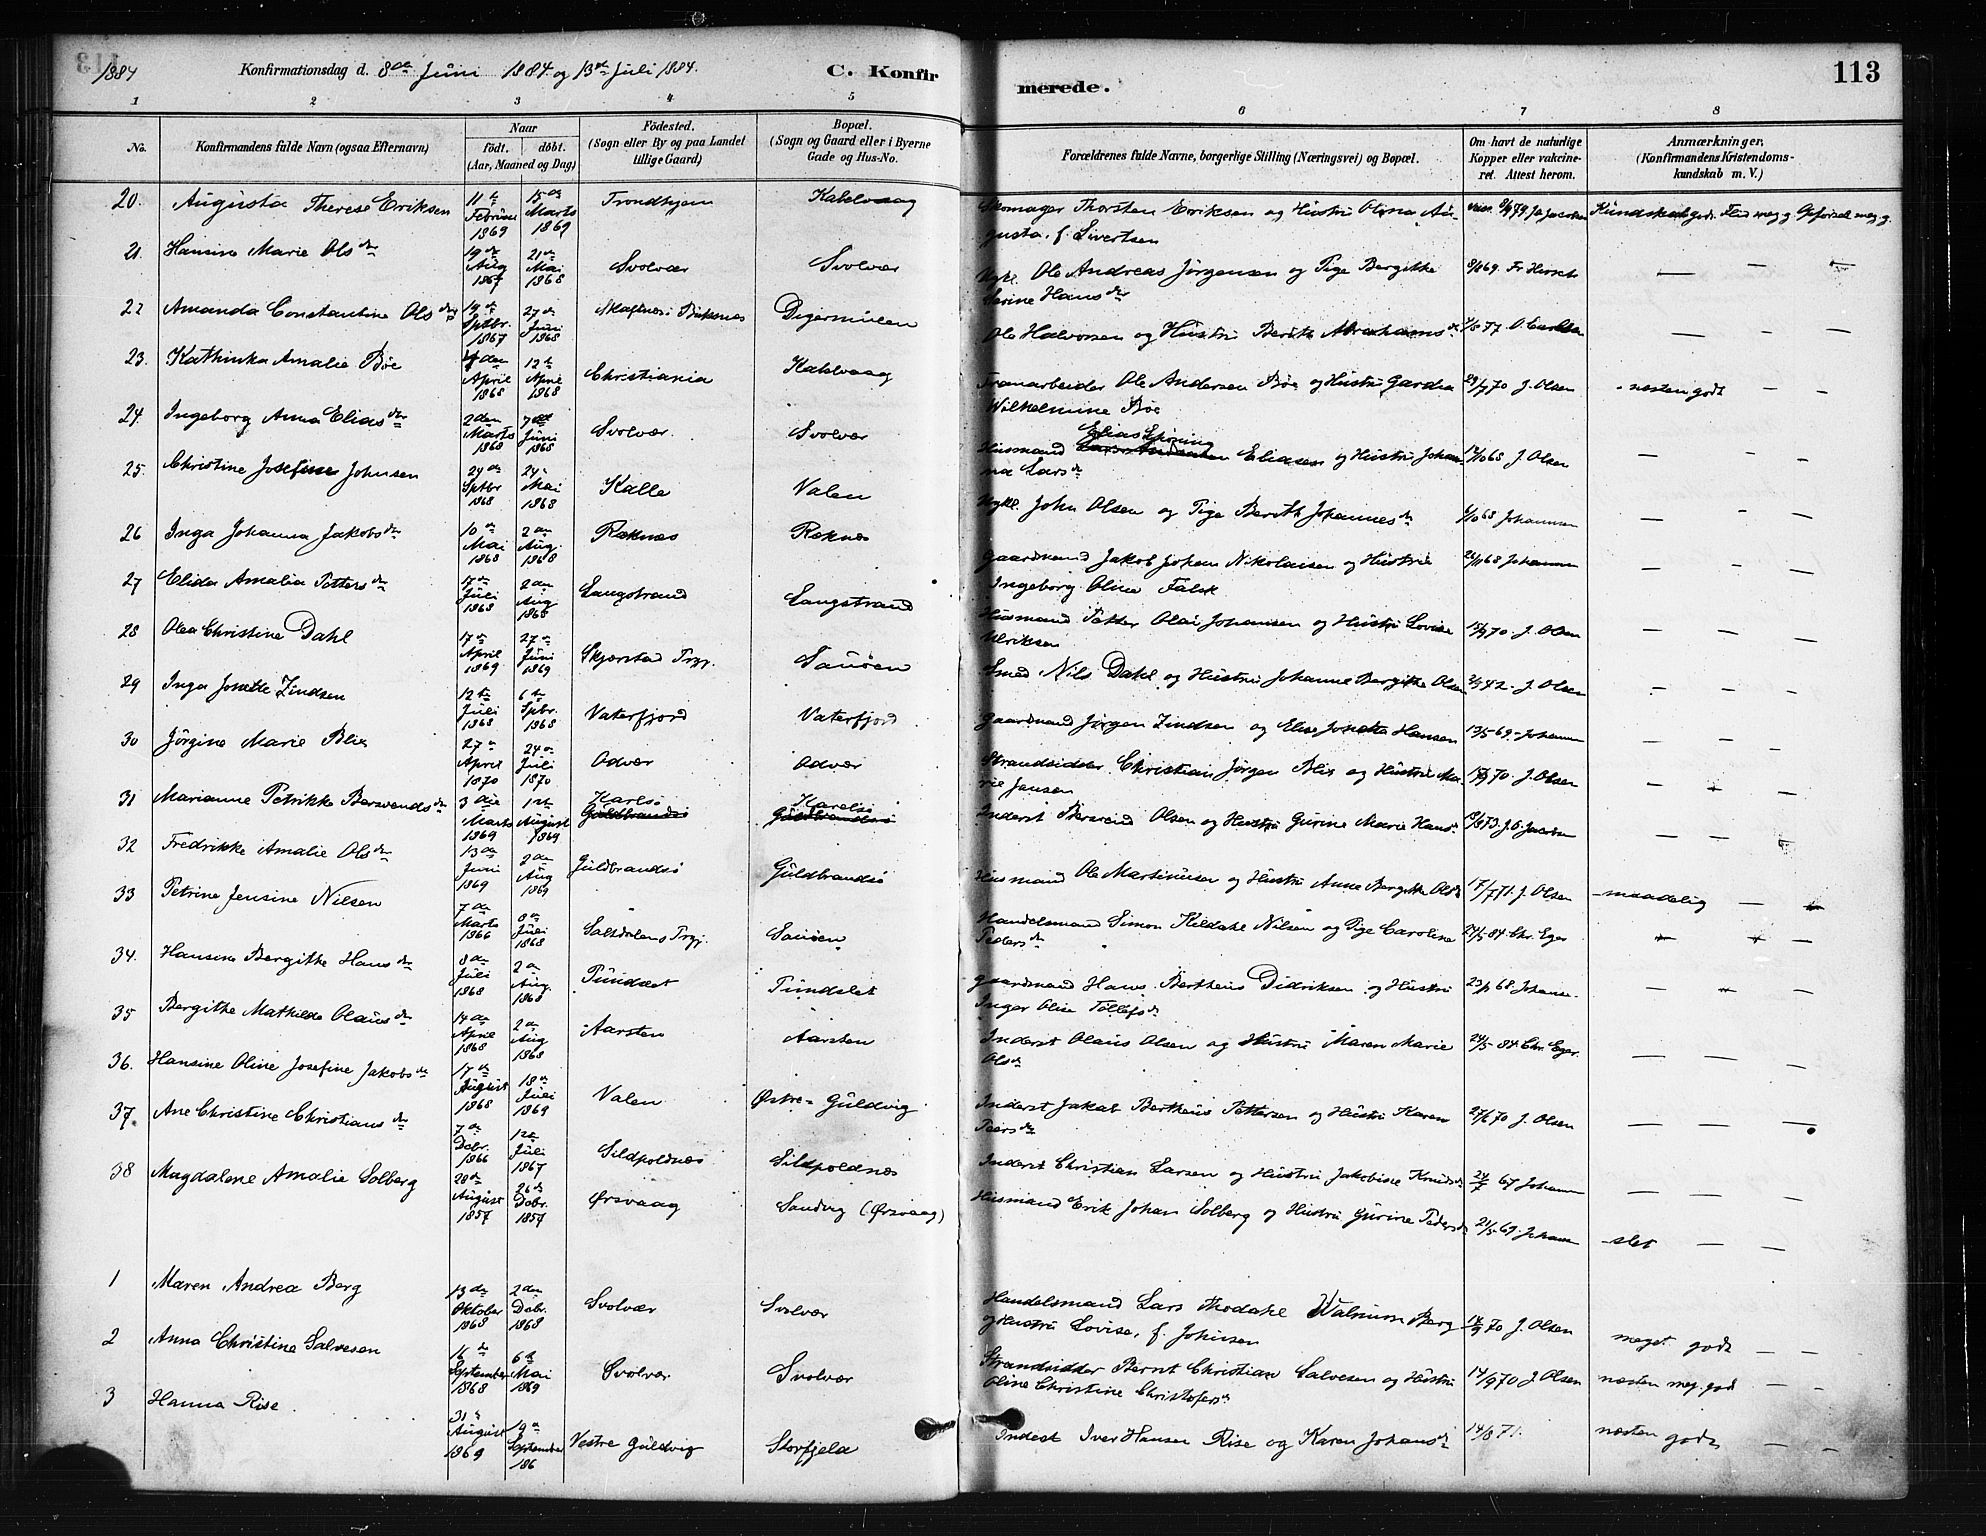 1884 Konfirmationsdag d. 8de Juni 1884 og 13de Juli 1884. C. Konfir merede. 113
1 2 3 4 5 6 7 8
No. Konfirmandens fulde Navn (ogsaa Efternavn) Naar født. døbt. (Aar, Maaned og Dag) Fødested. (Sogn eller By og paa Landet tillige Gaard) Bopæl. (Sogn og Gaard eller i Byerne Gade og Hus-No. Forældrenes fulde Navne, borgerlige Stilling (Næringsvei) og Bopæl. Om havt de naturlige Kopper eller vakcineret. Attest herom. Anmærkninger, (Konfirmandens Kristendomskundskab m. V.)
20. Augusta Therese Eriksen 11te Februar 1869 15de Marts 1869 Trondhjem Kabelvaag Skomager Thorsten Eriksen og Hustru Olina Augusta, f. Sivertsen
21. Hansine Marie Olsdr 19de Aug 1867 21de Mai 1868 Svolvær Svolvær Ole Andreas Jørgensen og Pige Bergitte Serine Hansdr 69. Fr Hirsch — — —
22 Amanda Constantine Olsdr 19de Sptbr. 1867 27de Juni 1868 Digermulen Ole Halvorsen og Hustru Berith Abrahamsdr — — —
23. Kathinka Amalie Bøe April 1868 12te April 1868 Christiania Kabelvaag Tranarbeider Ole Andersen Bøe og Hustru Gardea Wilhelmine Bøe 70 J. Olsen næsten godt — —
24. Ingeborg Anna Eliasdr 2den Marts 1868 7de Juni 1868 Svolvær. Svolvær Husmand Elias Eliasen og Hustru Johanna Larsdr 68 J. Olsen — — —
25. Christine Josefine Johnsen 24de Sptbr 1868 24 Mai 1868 Kalle Valen John Olsen og Pige Berith Johannesdr 68 Johannsen — — —
26 Inga Johanna Jakobsdr 10de Mai 1868 2den Aug. 1868 Røknes Røknes Gaardmand Jakob Johan Nikolaisen og Hustru Ingeborg Oline Falck 68 Johannsen — — —
27 Elida Amalia Pettersdr 17de Juli 1868 2den Aug 1868 Langstrand Langstrand Husmand Petter Olai Johansen og Hustru Lovise Ulriksen 70. J. Olsen — — —
28 Olea Christine Dahl 17de April 1869 27de Juni 1869 Skjerstad Prgj. Sauøen Smed Nils Dahl og Hustru Johanne Bergitte Olsen J. Olsen — — —
29 Inga Josette Zindsen 12te Juli 1868 6te Spbr. 1868 Vaterfjord Vaterfjord Gaardmand Jørgen Zindsen og Elise Josetta Hansen 13/5 69. Johannsen — — —
30 Jørgine Marie Blix 27de April 1870 24de Juli 1870 Odvær Odvær Strandsidder Christian Jørgen Blix og Hustru Marie Jansen 70 J. Olsen — — —
31 Marianne Petrikke Bersvendsdr 3die Marts 1869 1ste August 1869 Karlsø Guldbrandsø Karelsø Guldbrandsø Inderst Bersvend Olsen og Hustru Gurine Marie Hansdr 73. J. O. Jacobsen — — —
32 Fredrikke Amalie Olsdr 13de Juni 1869 2den Aug 1869 Guldbrandsø Guldbrandsø Husmand Ole Martinusen og Hustru Anne Bergitte Olsdr 17/7 71. J. Olsen maadelig — —
33 Petrine Jensine Nilsen 7de Marts 1866 8de Juli 1868 Saltdalens Prgj. Sauøen Handelsmand Simon Kildahl Nilsen og Pige Caroline Pedersdr 24/5 84 Chr. Eger — — —
34. Hansine Bergitte Hansdr 8de Juli 1868 2den Aug. 1868 Pundslet Pundslet Gaardmand Hans Bertheus Didriksen og Hustru Inger Oline Tollefsdr 68 Johanns. — — —
35 Bergithe Mathilde Olausdr 14de April 1868 2den Aug 1868 Aarsten Aarsten Inderst Olaus Olsen og Hustru Maren Marie Olsdr 24/5 84 Chr. Eger. — — —
36. Hansine Oline Josefine Jakobsdr 17de August 1868 18de Juli 1869 Valen Østre Guldvig Inderst Jakob Bertheus Pettersen og Hustru Karen Peersdr 27/6 70 J. Olsen — — —
37. Ane Christine Christiansdr 7de Dcbr. 1866 12te Juli 1867 Sildpoldnes Sildpoldnes Inderst Christian Larsen og Hustru Jakobine Knudsdr 24/7 67 Johannsen — — —
38 Magdalene Amalie Solberg 28de August 1857 26de Dcbr. 1857 Ørsvaag Sandvig (Ørsvaag) Husmand Erik Johan Solberg og Hustru Gurine Pedersdr 21/5 69. Johannsen slet — —
1 Maren Andrea Berg 13de Oktober 1868 2den Dcbr. 1868 Svolvær Svolvær Handelsmand Lars Thodahl Walnum Berg og Hustru Lovise, f. Johnsen 17/9 70 J. Olsen meget godt — —
2 Anna Christine Salvesen 16de September 1868 6te Mai 1869 Svolvær Svolvær Strandsidder Bernt Christian Salvesen og Hustru Oline Christine Christofersdr 14/9 70 J. Olsen næsten meg. god — —
3 Hanna Rise. 31te August 1869 19de September 186 Vestre Guldvig Storfjeld Inderst Iver Hansen Rise og Karen Johansdr 14/8 71. næsten godt — —